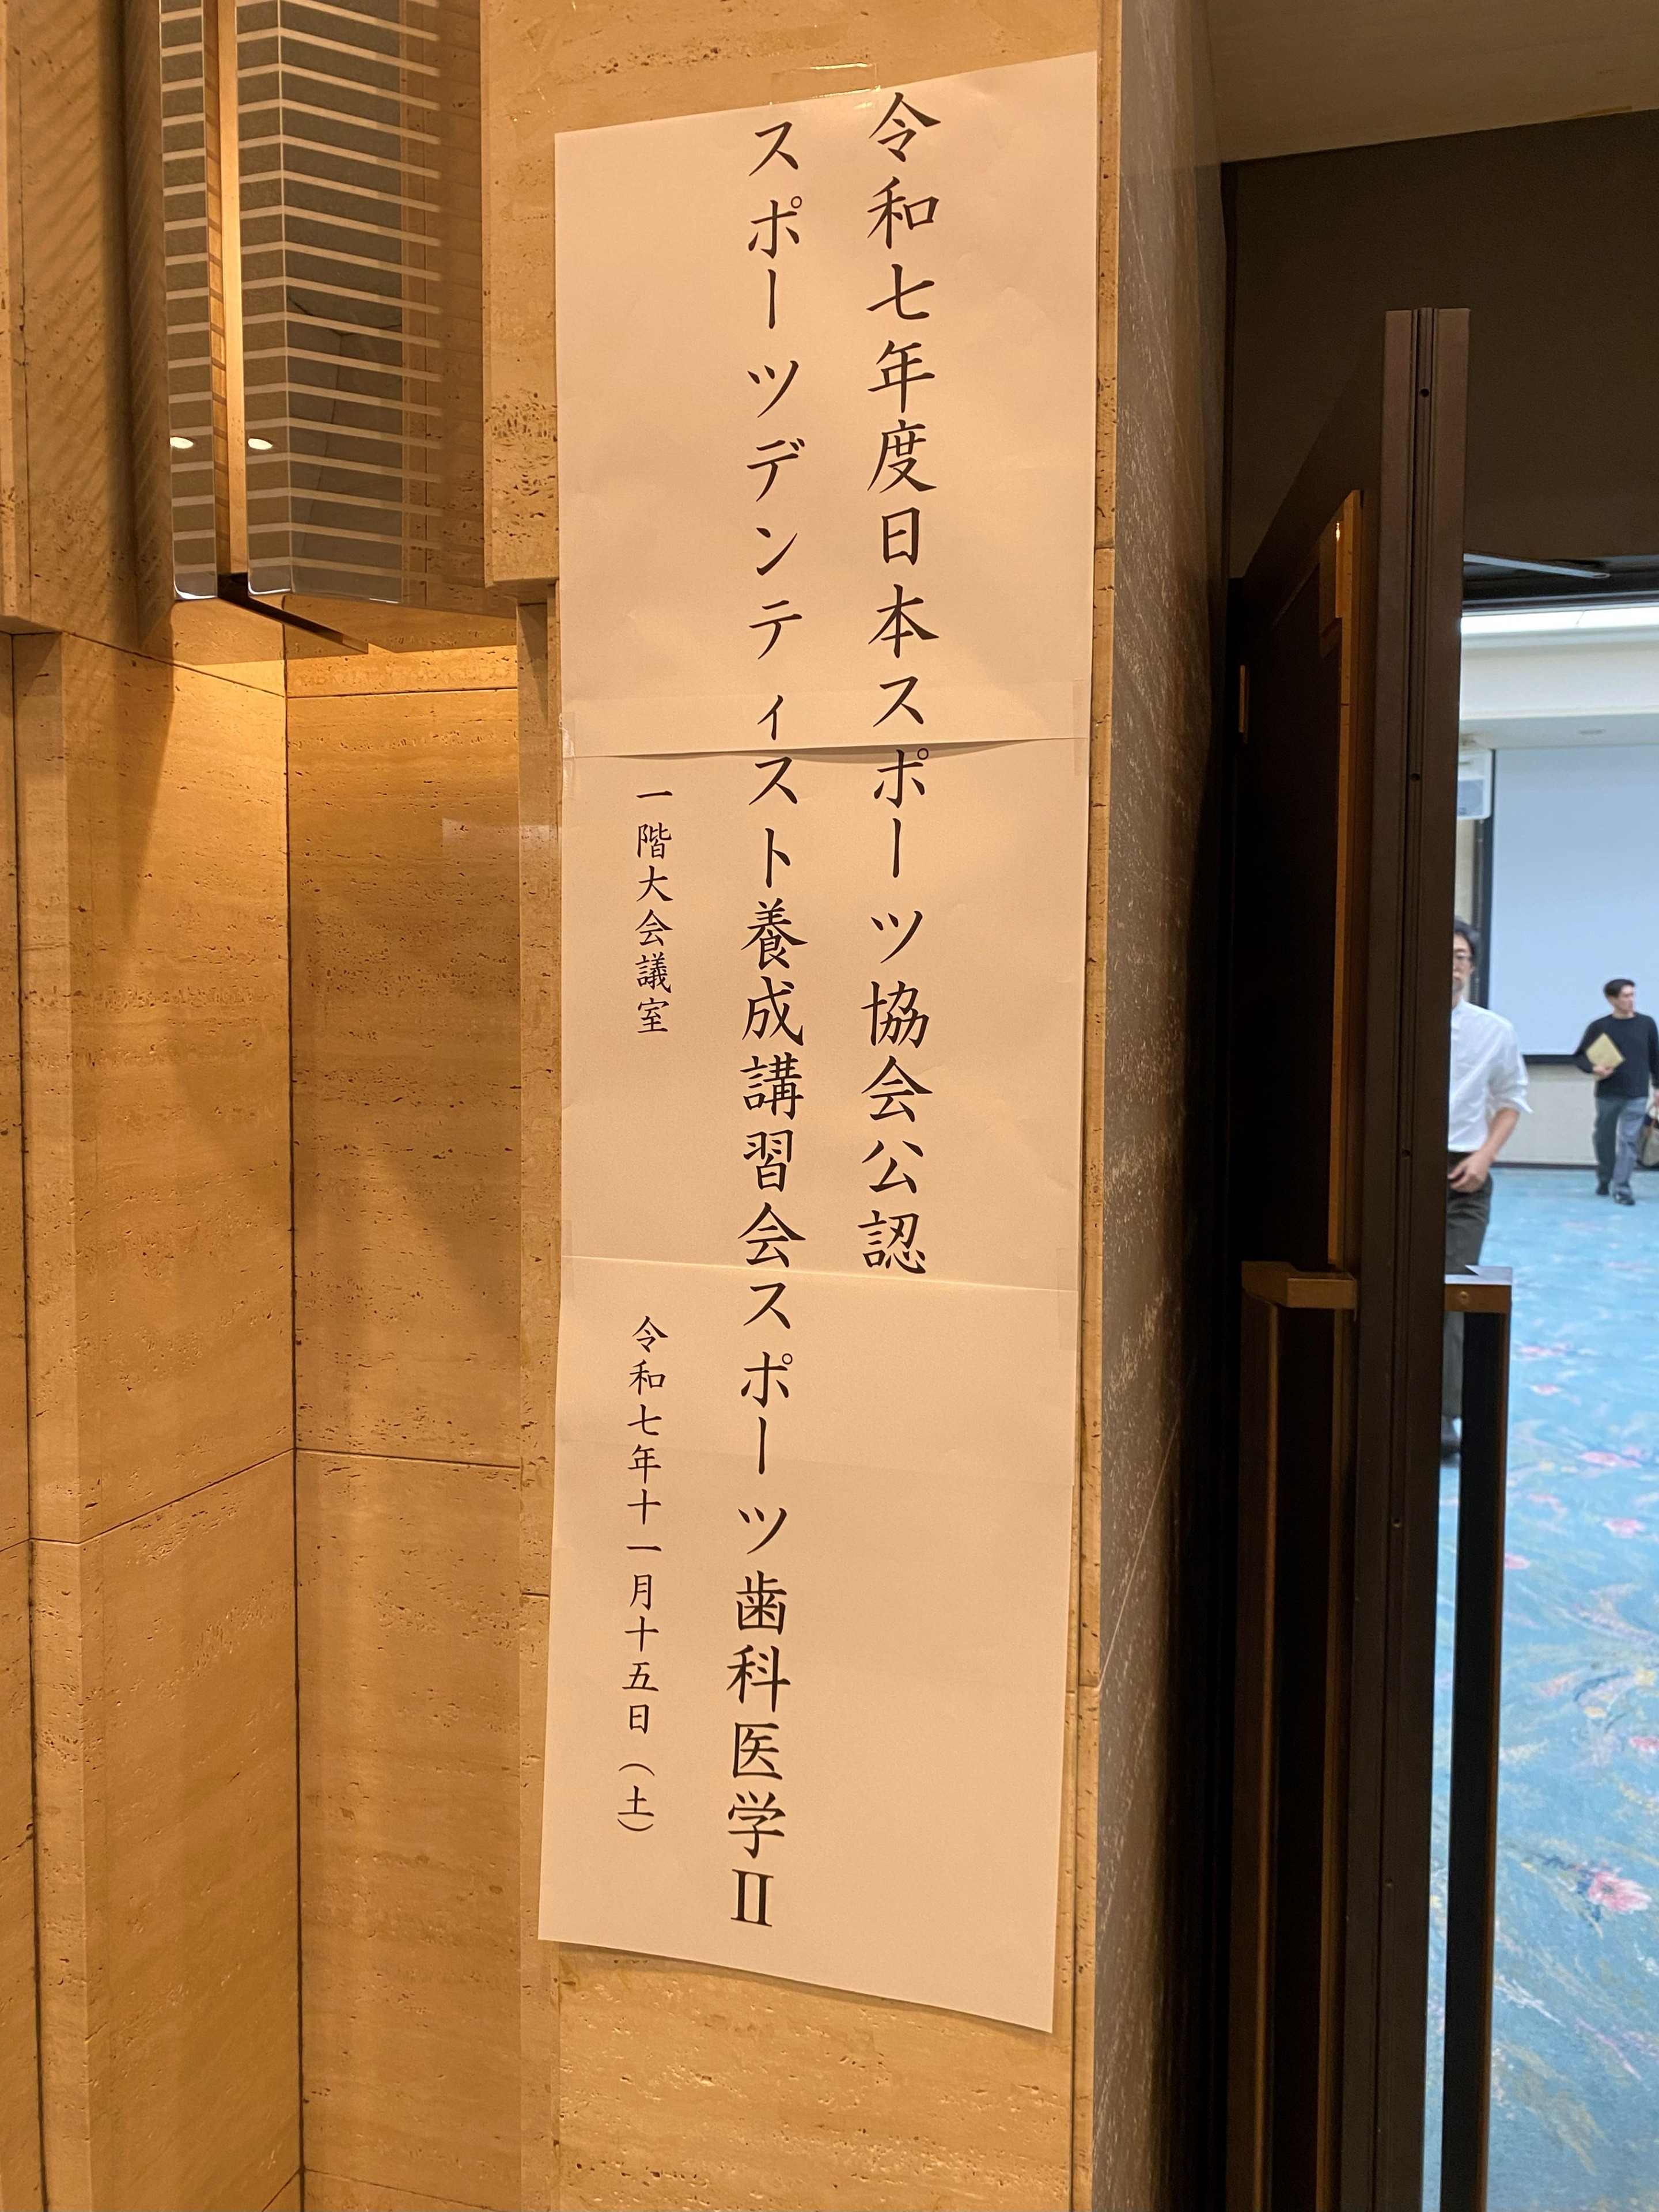 令和七年度日本スポーツ協会公認
スポーツデンティスト養成講習会スポーツ歯科医学Ⅱ
一階大会議室
令和七年十一月十五日（土）